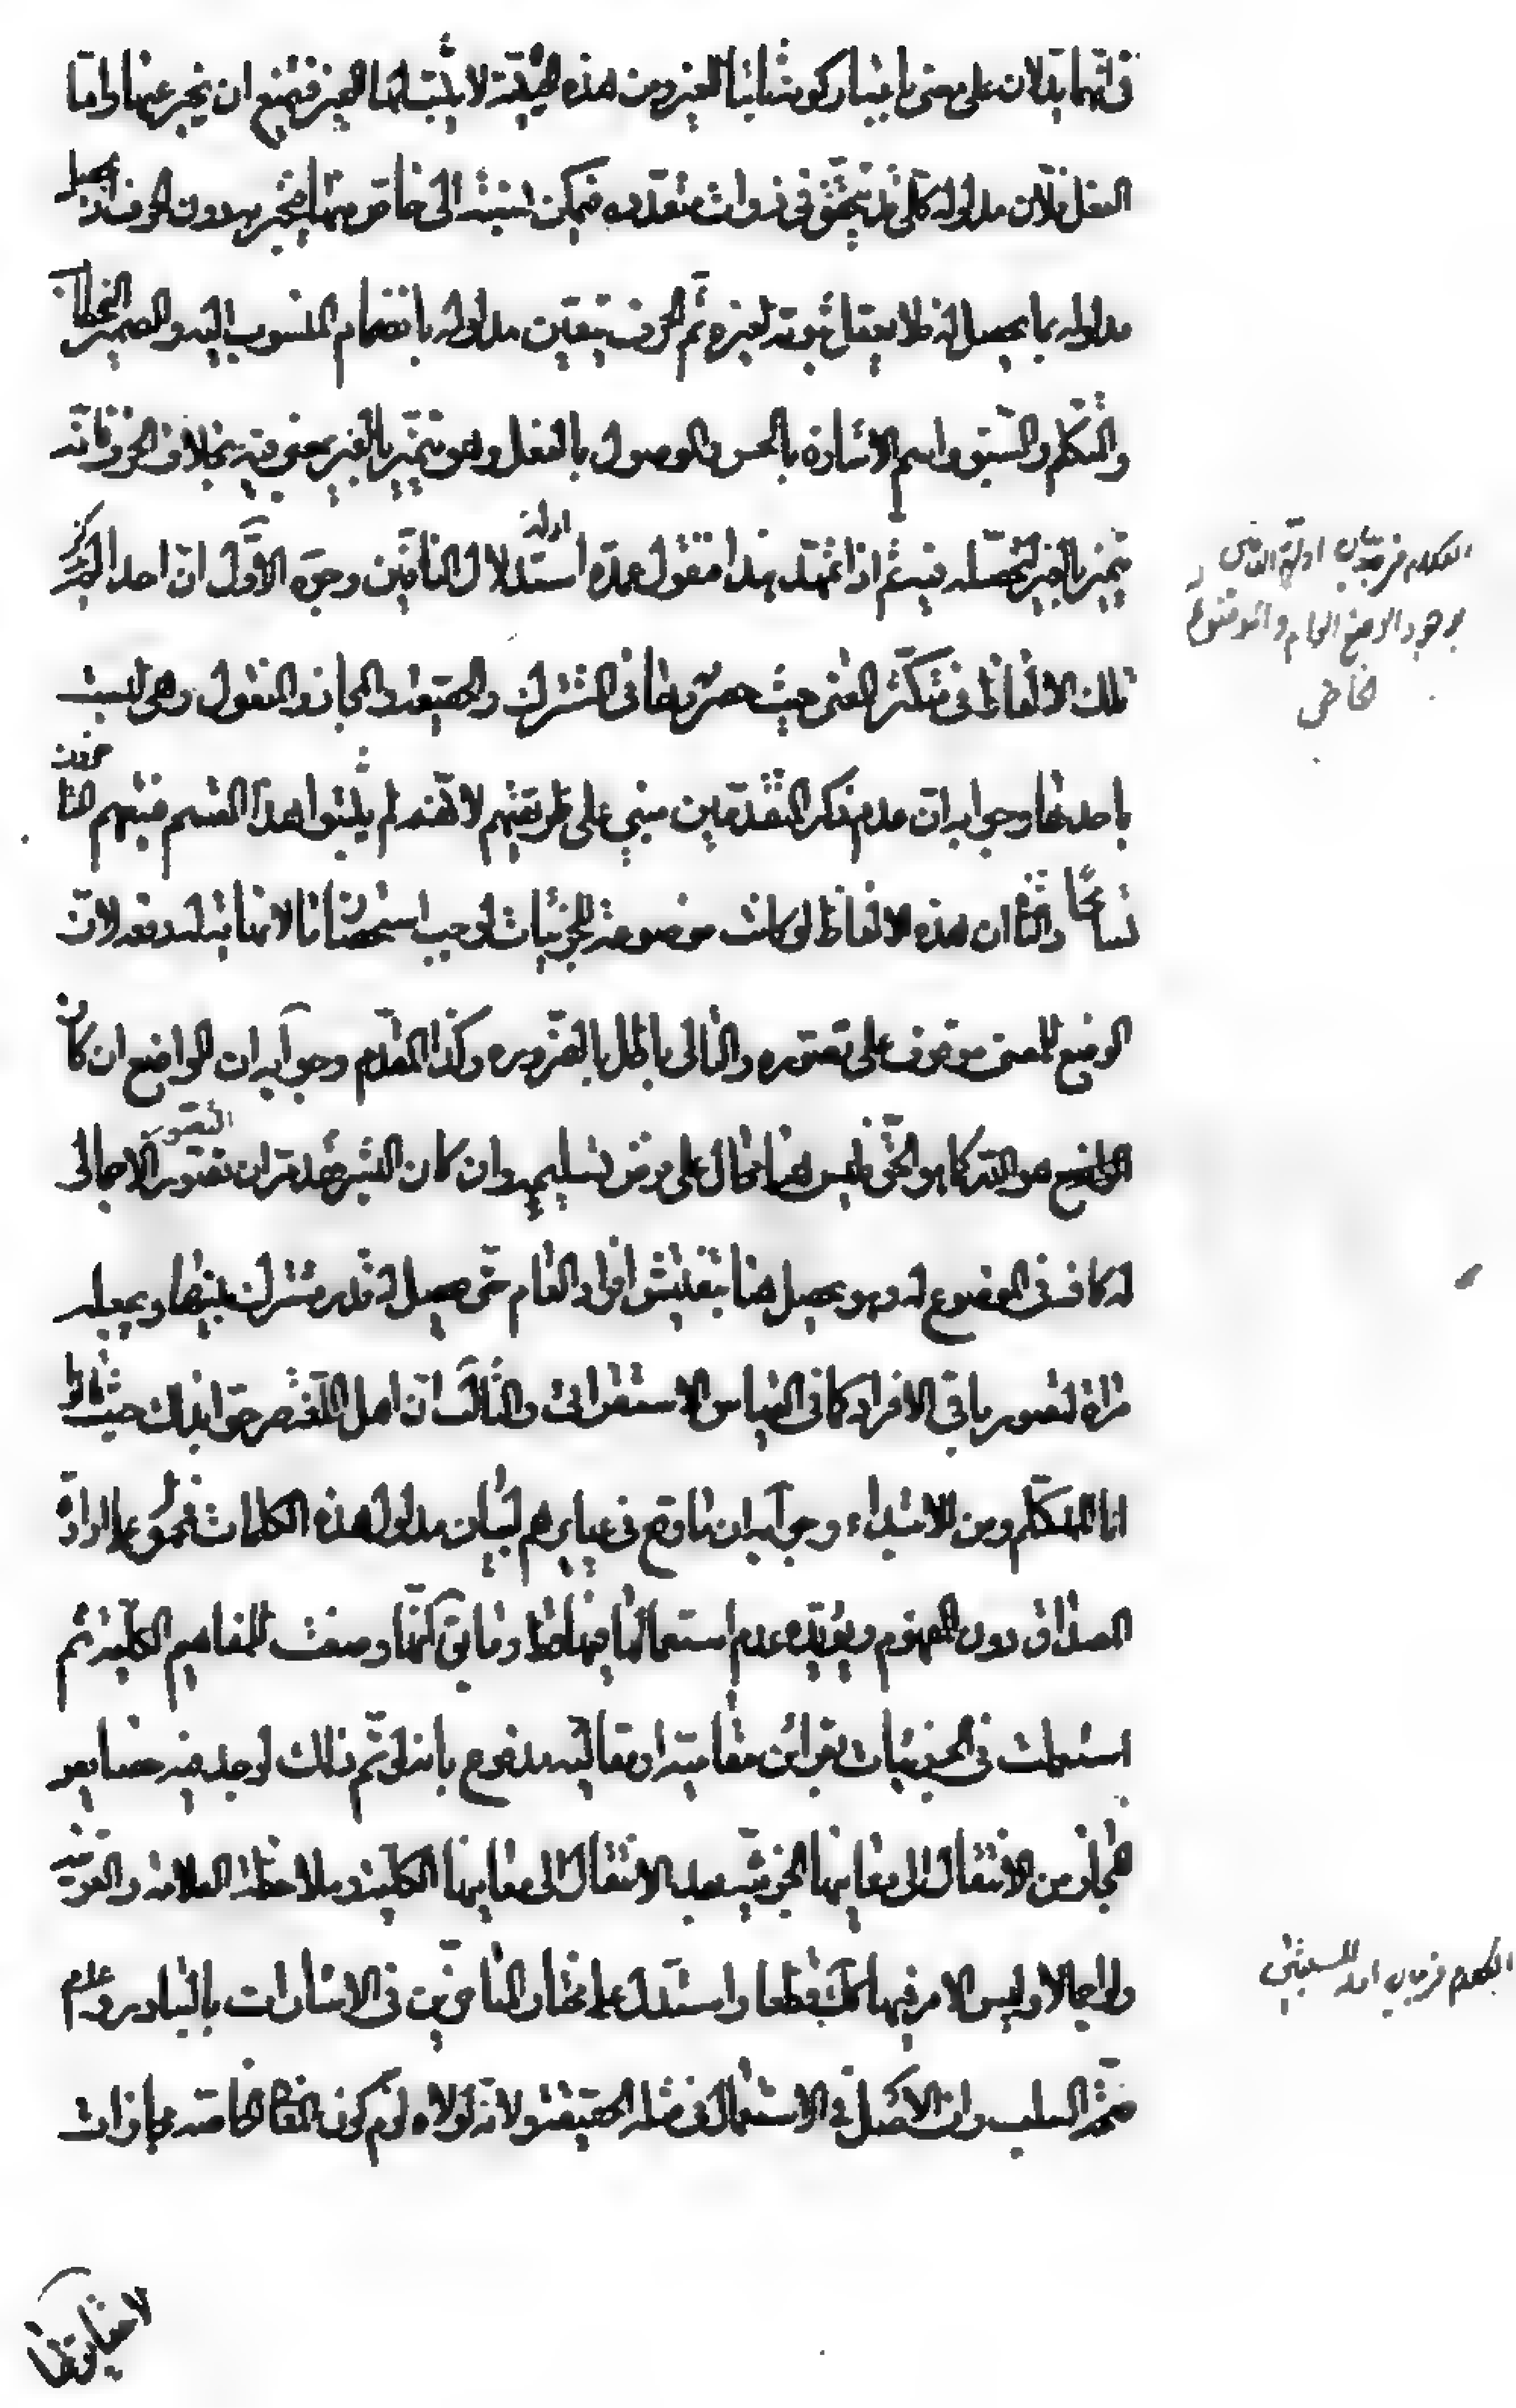 في انهما يدلان على معنى باعتبار كونه ثابتا للغير ومن هذه الحيثية لا يثبت لهما الغير فيمتنع ان يخبر عنهما واما
الفعل فلان مدلوله كلي قد يتحقق في ذوات متعددة فيمكن نسبته الى خاص منها فيخبر به دون الحرف اذ تحصل
مدلوله بما يحصل له فلا يعقل ثبوته لغيره ثم الحرف يتعين مدلوله بانضمام المنسوب اليه والضمير بالخطاب
والتكلم والسبق واسم الاشارة بالحس والموصول بالفعل وهو يتميز بالغير بمعنى فيه بخلاف الحرف فانه
يتميز بالغير لتحصله فيه ثم اذا تمهد هذا فنقول عمدة ادلة استدلال النافين وجوه الاول ان احدا لم يذكر
تلك الالفاظ في متكثر المعنى حيث حصروها في المشترك والحقيقة والمجاز والمنقول وهي ليست
باحدها وجوابه ان عدم ذكر المتقدمين مبني على طريقتهم لانهم لم يثبتوا هذا القسم فتبعهم المتاخرون
تسامحا والثاني ان هذه الالفاظ لو كانت موضوعة للجزئيات لوجب استحضار ما لا نهاية له دفعة لان
الوضع للمعنى موقوف على تصوره والتالي باطل بالضرورة وكذا المقدم وجوابه ان الواضع ان كان
الواضع هو الله كما هو الحق فليس هنا مقال على فرض تسليمه وان كان البشر فقد مر ان تصور التصور الاجمالي
له كاف في الموضوع له وهو يحصل هنا بتفتيش افراد العام حتى يحصل له قدر مشترك بينها ويجعله
مراة لتصور باقي الافراد كما في القياس الاستقرائي والثالث ان اهل اللغة صرحوا بذلك حيث قالوا
انا للمتكلم ومن للابتداء وجوابه ان ما وقع في عبايرهم لبيان مدلول هذه الكلمات فمحمول على ارادة
المصداق دون المفهوم ويؤيده عدم استعمالها فيها قط وما يق انها وضعت للمفاهيم الكلية ثم
استعملت في الجزئيات بقرائن مقامية او مقالية مدفوع بانه لو تم ذلك لوجد فيه خصايص
المجاز من الانتقال الى معانيها الجزئية بعد الانتقال الى معانيها الكلية وملاحظة العلاقة والقرينة
ولو اجمالا وليس الامر فيها كك قطعا واستدل على مختار المتاخرين في الاشارات بالتبادر وعدم
صحة السلب وان الاصل في الاستعمال في مثله الحقيقة ولانه لولاه لزم كون الفاظ الخاصة مجازات
الكلام في بيان ادلة النافين
لوجود الوضع العام والموضوع له
الخاص
الكلام في بيان ادلة المثبتين
لا حقايق لها